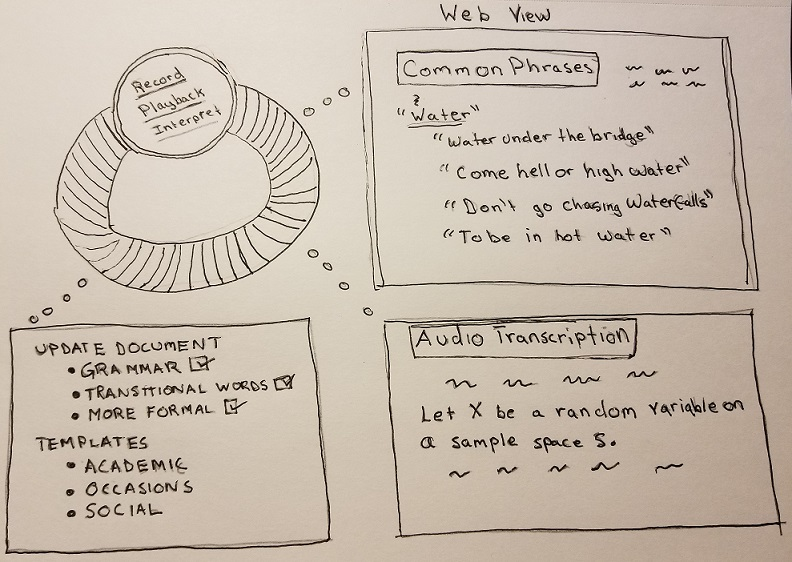 Web View
Record
Playback
Interpret
Common Phrases
?
"Water"
"Water under the bridge"
"Come hell or high water"
"Don't go chasing Waterfalls"
"To be in hot water"
UPDATE DOCUMENT
• GRAMMAR
• TRANSITIONAL WORDS
• MORE FORMAL
TEMPLATES
• ACADEMIC
• OCCASIONS
• SOCIAL
Audio Transcription
Let X be a random variable on
a sample space S.